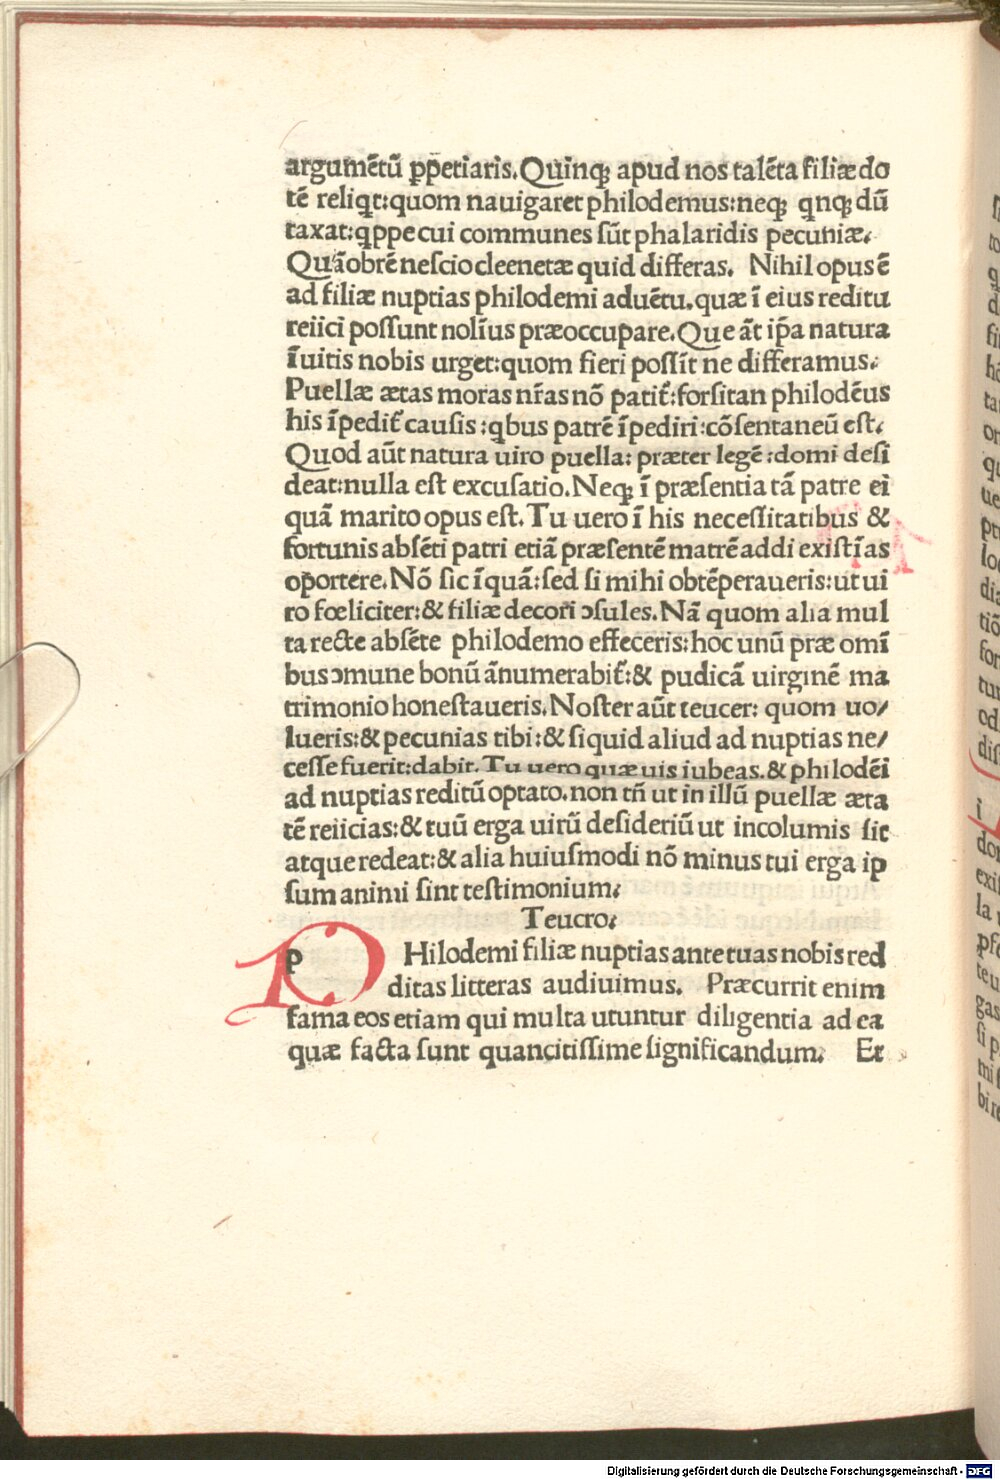 argumētū ꝑpetiaris. Quinqꝫ apud nos talēta filiæ do
tē reliqͥt: quom nauigaret philodemus: neqꝫ qͥnqꝫ dū
taxat: qͥppe cui communes sūt phalaridis pecuniæ.
Quāobrē nescio cleenetæ quid differas. Nihil opus ē
ad filiæ nuptias philodemi aduētu. quæ ī eius reditu
reiici possunt nolīus præoccupare. Que āt ip̄a natura
īuitis nobis urget: quom fieri possīt ne differamus.
Puellæ ætas moras nr̄as nō patit̄: forsitan philodēus
his īpedit̄ causis: qͥbus patrē īpediri: cōsentaneū est.
Quod aūt natura uiro puella: præter legē: domi desi
deat: nulla est excusatio. Neqꝫ ī præsentia tā patre ei
quā marito opus est. Tu uero ī his necessitatibus &
fortunis absēti patri etiā præsentē matrē addi existīas
oportere. Nō sic īquā: sed si mihi obtēperaueris: ut ui
ro fœliciter: & filiæ decori ↄsules. Nā quom alia mul
ta recte absēte philodemo effeceris: hoc unū præ omī
bus ↄmune bonū ānumerabit̄: & pudicā uirginē ma
trimonio honestaueris. Noster aūt teucer: quom uo/
lueris: & pecunias tibi: & siquid aliud ad nuptias ne/
cesse fuerit: dabit. Tu uero quæ uis iubeas. & philodēi
ad nuptias reditū optato. non tn̄ ut in illū puellæ æta
tē reiicias: & tuū erga uirū desideriū ut incolumis sit
atque redeat: & alia huiusmodi nō minus tui erga ip
sum animi sint testimonium.
Teucro.
P Hilodemi filiæ nuptias ante tuas nobis red
ditas litteras audiuimus. Præcurrit enim
fama eos etiam qui multa utuntur diligentia ad ea
quæ facta sunt quancitissime significandum. Et
Digitalisierung gefördert durch die Deutsche Forschungsgemeinschaft - DFG